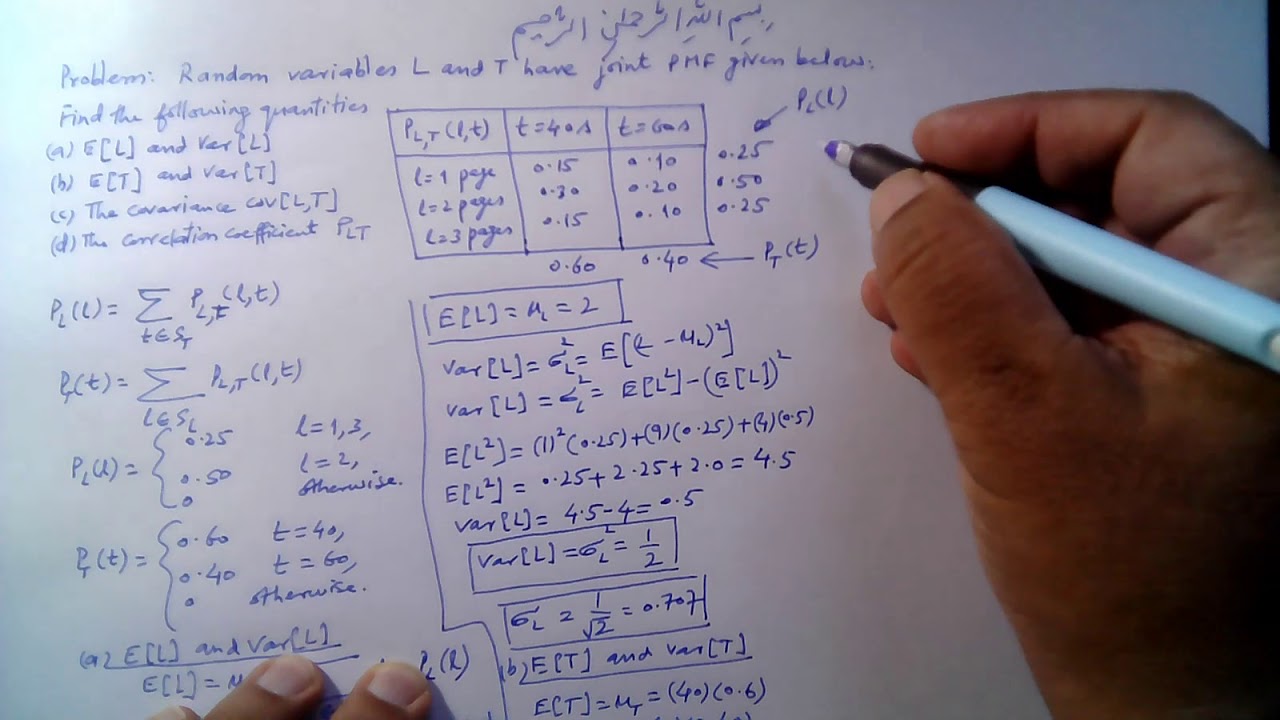 بسم الله الرحمن الرحيم
Problem: Random variables L and T have joint PMF given below.
Find the following quantities
(a) E[L] and Var[L]
(b) E[T] and Var[T]
(c) The covariance Cov[L,T]
(d) The correlation coefficient ρLT
P_L,T(l,t) t=40s t=60s
l=1 page 0.15 0.10 0.25
l=2 pages 0.30 0.20 0.50
l=3 pages 0.15 0.10 0.25
P_L(l)
0.60 0.40 ← P_T(t)
P_L(l) = ∑ P_L,T(l,t)
t∈S_T
P_T(t) = ∑ P_L,T(l,t)
l∈S_L
P_L(l) = { 0.25 l=1,3,
0.50 l=2,
0 otherwise.
P_T(t) = { 0.60 t=40,
0.40 t=60,
0 otherwise.
(a) E[L] and Var[L]
E[L] =
P_L(l)
E[L] = μ_L = 2
Var[L] = σ_L² = E[(L-μ_L)²]
Var[L] = σ_L² = E[L²]-(E[L])²
E[L²] = (1)²(0.25)+(9)(0.25)+(4)(0.5)
E[L²] = 0.25+2.25+2.0=4.5
Var[L] = 4.5-4=0.5
Var[L] = σ_L² = 1/2
σ_L = 1/√2 = 0.707
(b) E[T] and Var[T]
E[T] = μ_T = (40)(0.6)